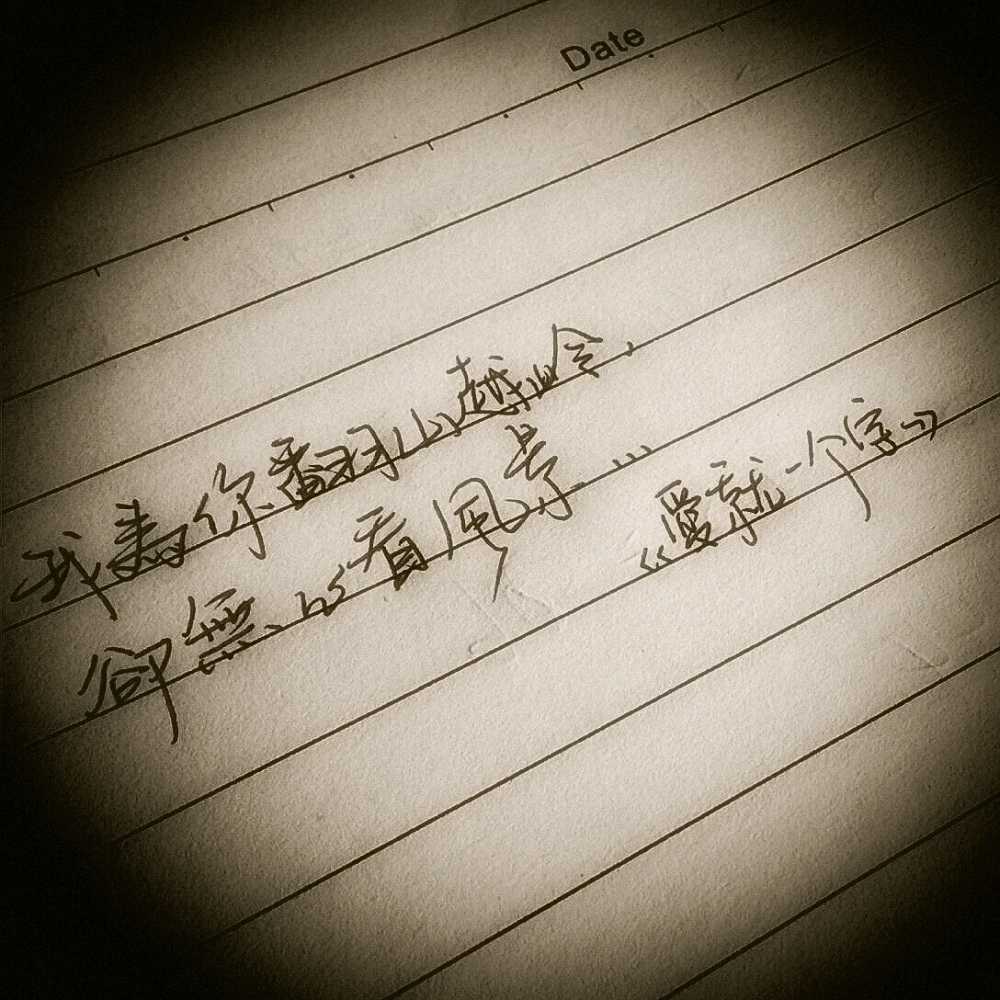 Date
我為你翻山越岭,
卻無心看風景...
《愛就一个字》